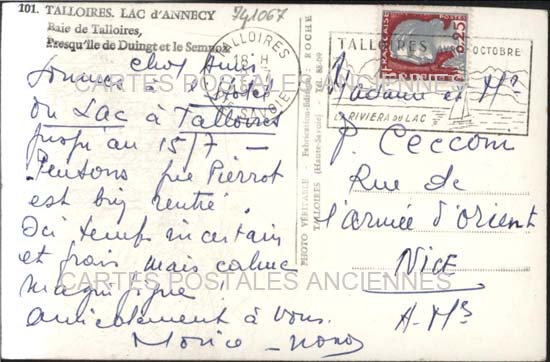 101. TALLOIRES. LAC d'ANNECY
Baie de Talloires,
Presqu'île de Duingt et le Semnoz
741067
Chers Amis
Sommes à l'Hôtel
du Lac à Talloires
jusqu'au 15/7 —
Pensons que Pierrot
est bien rentré.
Ici temps incertain
et frais mais calme
magnifique.
Amicalement à vous.
PHOTO VÉRITABLE - Fabrication-Édition ROCHE
TALLOIRES (Haute-Savoie) - Tél. 88-09
TALLOIRES
18 H
HTE SAVOIE
TALLOIRES AVRIL OCTOBRE
LA RIVIERA DU LAC
FRANÇAISE
POSTES
0,25
Madame et Mr
P. Ceccom
Rue de
l'armée d'Orient
NICE
A-Mes
CARTES POSTALES ANCIENNES
CARTES POSTALES ANCIENNES